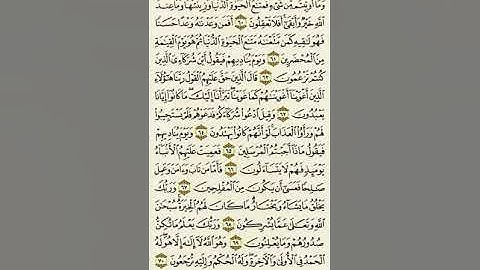 وَمَآ أُوتِيتُم مِّن شَىْءٍ فَمَتَـٰعُ ٱلْحَيَوٰةِ ٱلدُّنْيَا وَزِينَتُهَا وَمَا عِندَ
ٱللَّهِ خَيْرٌ وَأَبْقَىٰٓ أَفَلَا تَعْقِلُونَ ٦٠ أَفَمَن وَعَدْنَـٰهُ وَعْدًا حَسَنًا
فَهُوَ لَـٰقِيهِ كَمَن مَّتَّعْنَـٰهُ مَتَـٰعَ ٱلْحَيَوٰةِ ٱلدُّنْيَا ثُمَّ هُوَ يَوْمَ ٱلْقِيَـٰمَةِ
مِنَ ٱلْمُحْضَرِينَ ٦١ وَيَوْمَ يُنَادِيهِمْ فَيَقُولُ أَيْنَ شُرَكَآءِىَ ٱلَّذِينَ
كُنتُمْ تَزْعُمُونَ ٦٢ قَالَ ٱلَّذِينَ حَقَّ عَلَيْهِمُ ٱلْقَوْلُ رَبَّنَا هَـٰٓؤُلَآءِ
ٱلَّذِينَ أَغْوَيْنَآ أَغْوَيْنَـٰهُمْ كَمَا غَوَيْنَا تَبَرَّأْنَآ إِلَيْكَ مَا كَانُوٓا۟ إِيَّانَا
يَعْبُدُونَ ٦٣ وَقِيلَ ٱدْعُوا۟ شُرَكَآءَكُمْ فَدَعَوْهُمْ فَلَمْ يَسْتَجِيبُوا۟
لَهُمْ وَرَأَوُا۟ ٱلْعَذَابَ لَوْ أَنَّهُمْ كَانُوا۟ يَهْتَدُونَ ٦٤ وَيَوْمَ يُنَادِيهِمْ
فَيَقُولُ مَاذَآ أَجَبْتُمُ ٱلْمُرْسَلِينَ ٦٥ فَعَمِيَتْ عَلَيْهِمُ ٱلْأَنۢبَآءُ
يَوْمَئِذٍ فَهُمْ لَا يَتَسَآءَلُونَ ٦٦ فَأَمَّا مَن تَابَ وَءَامَنَ وَعَمِلَ
صَـٰلِحًا فَعَسَىٰٓ أَن يَكُونَ مِنَ ٱلْمُفْلِحِينَ ٦٧ وَرَبُّكَ
يَخْلُقُ مَا يَشَآءُ وَيَخْتَارُ مَا كَانَ لَهُمُ ٱلْخِيَرَةُ سُبْحَـٰنَ
ٱللَّهِ وَتَعَـٰلَىٰ عَمَّا يُشْرِكُونَ ٦٨ وَرَبُّكَ يَعْلَمُ مَا تُكِنُّ
صُدُورُهُمْ وَمَا يُعْلِنُونَ ٦٩ وَهُوَ ٱللَّهُ لَآ إِلَـٰهَ إِلَّا هُوَ لَهُ
ٱلْحَمْدُ فِى ٱلْأُولَىٰ وَٱلْـَٔاخِرَةِ وَلَهُ ٱلْحُكْمُ وَإِلَيْهِ تُرْجَعُونَ ٧٠